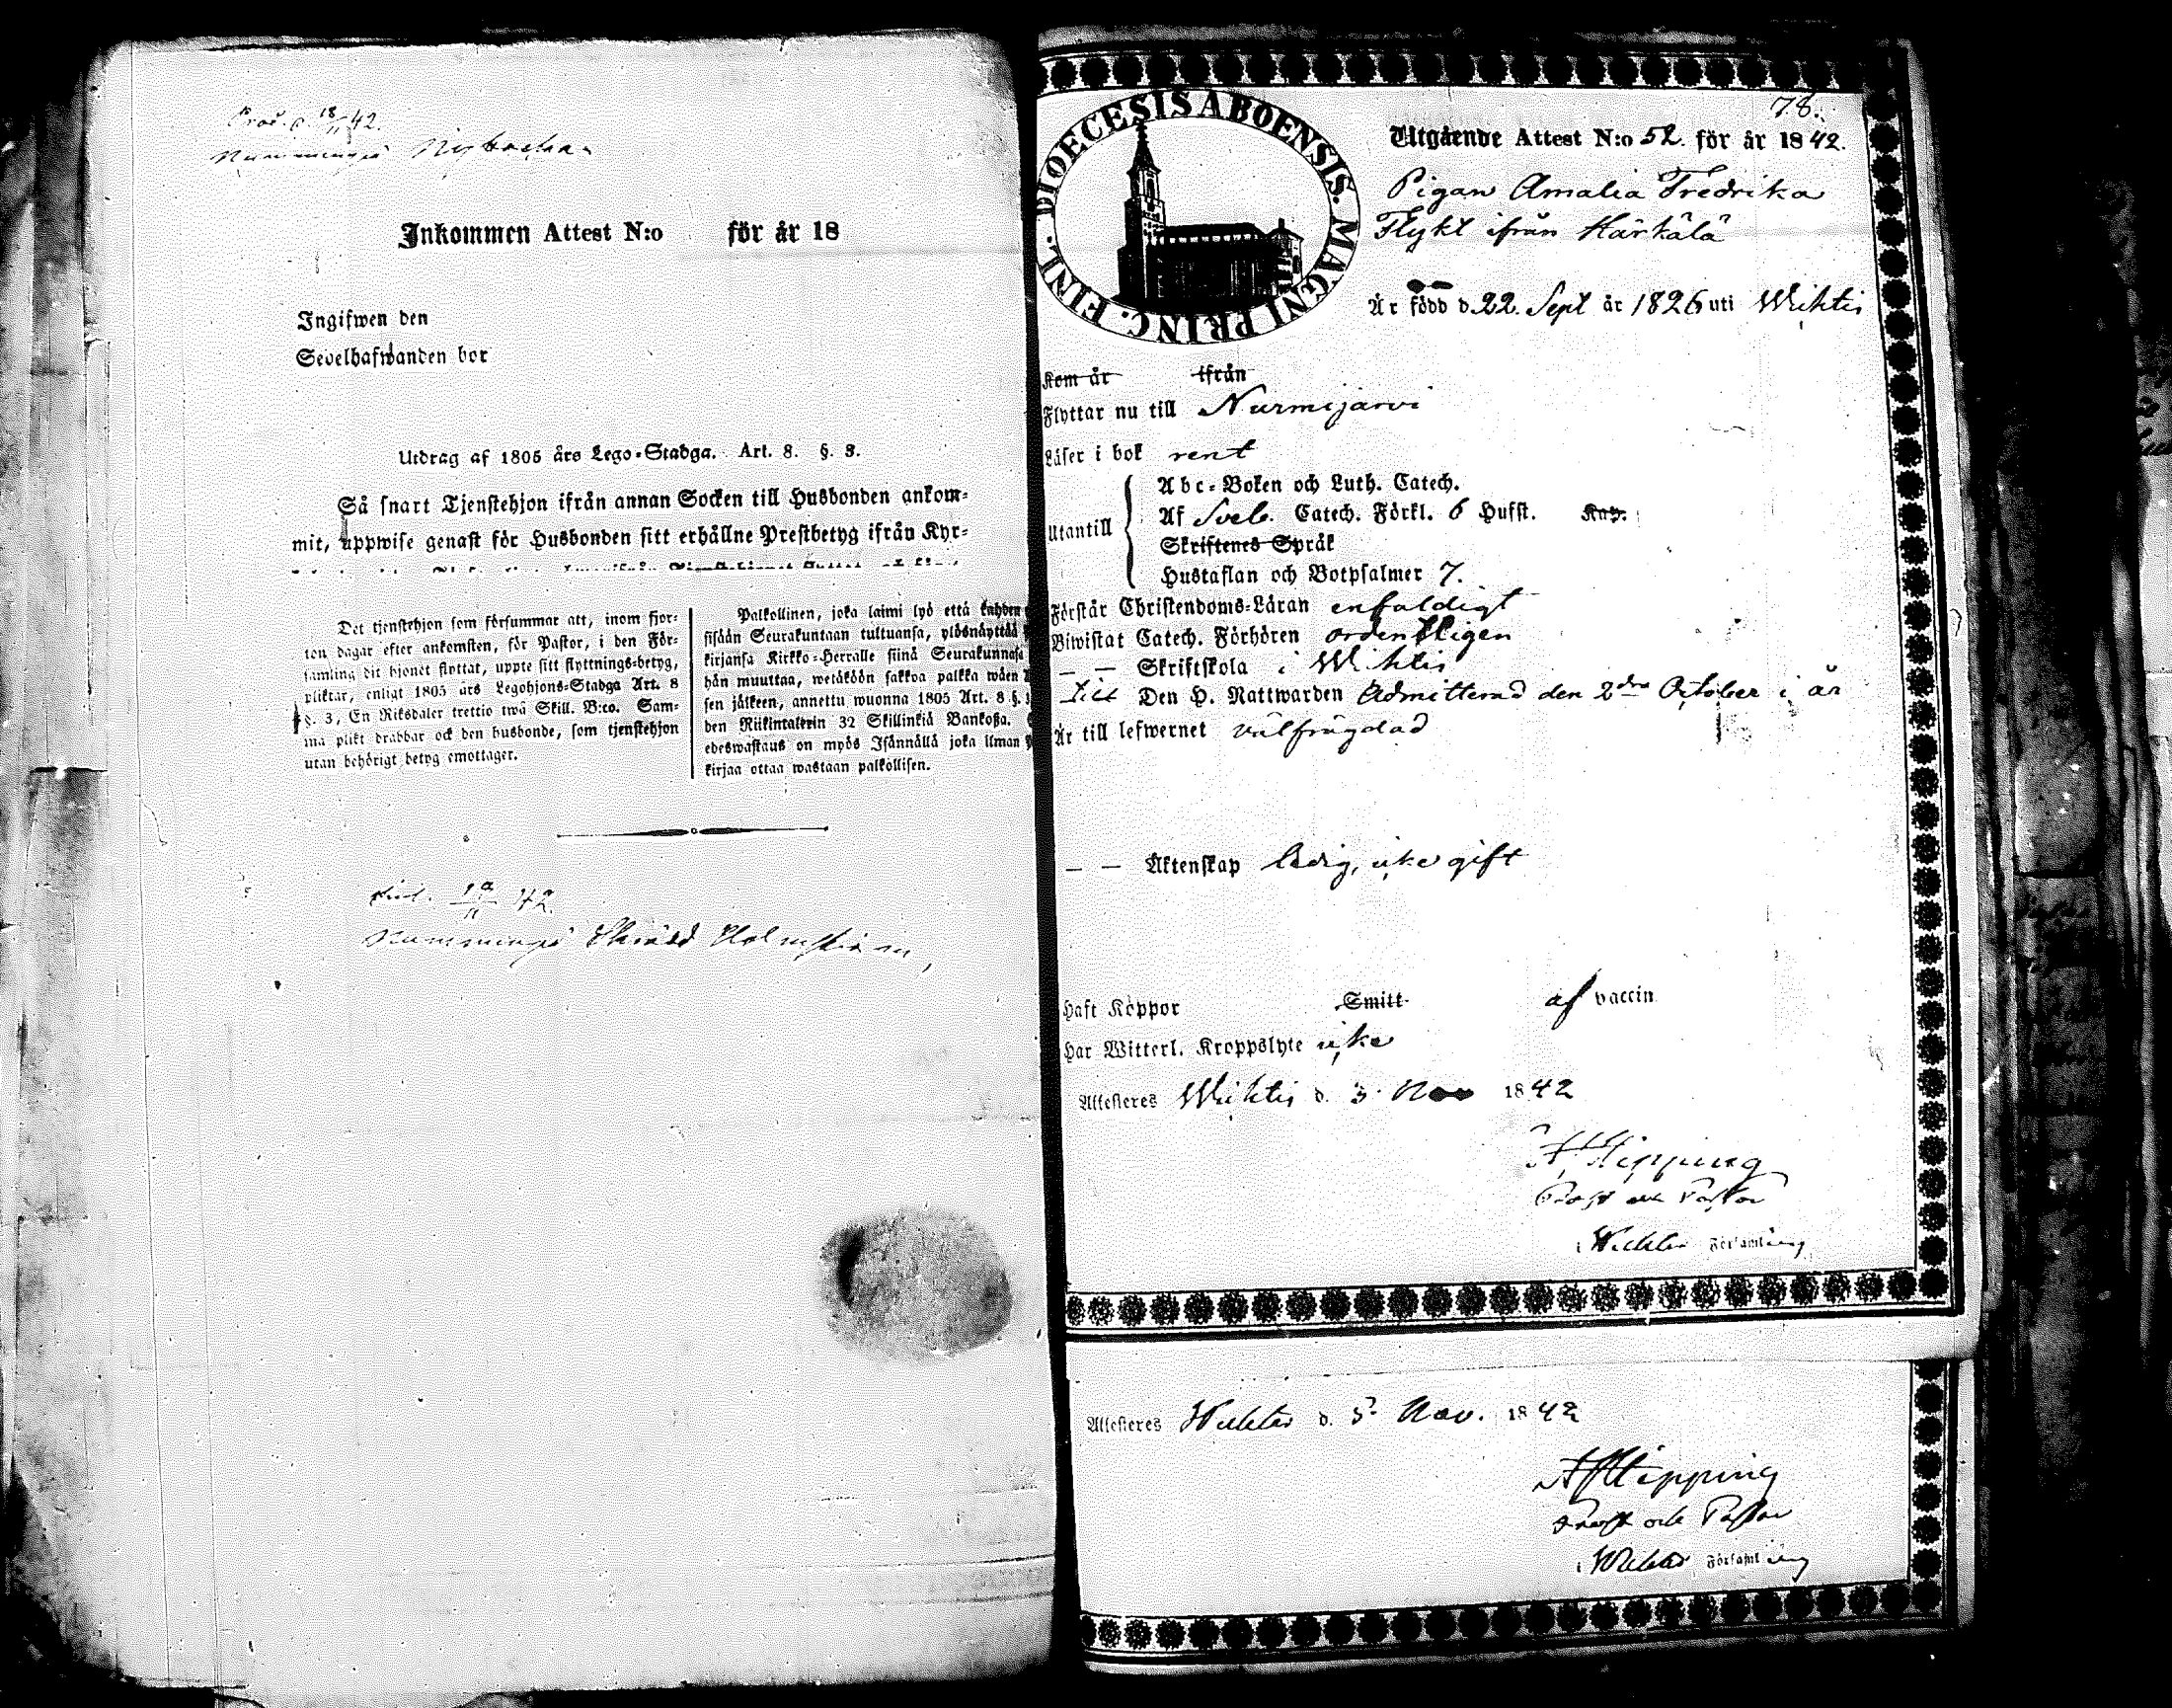 Prod. d. 18/11 42.
Nummenpä Nybacka
Inkommen Attest N:o för år 18
Ingifwen den
Sedelhafwanden bor
Utdrag af 1805 års Lego-Stadga. Art. 8. §. 3.
Så snart Tjenstehjon ifrån annan Socken till Husbonden ankom-
mit, uppwise genast för Husbonden sitt erhållne Prestbetyg ifrån Kyr-
Det tjenstehjon som försummar att, inom fjor-
ton dagar efter ankomsten, för Pastor, i den För-
samling dit hjonet flyttat, uppte sitt flyttnings-betyg,
pliktar, enligt 1805 års Legohjons-Stadga Art. 8
§. 3, En Riksdaler trettio twå Skill. B:co. Sam-
ma plikt drabbar ock den husbonde, som tjenstehjon
utan behörigt betyg emottager.
Palkollinen, joka laimi lyö että kahden
sisään Seurakuntaan tultuansa, ylösnäyttää
kirjansa Kirkko-Herralle siinä Seurakunnasa
hän muuttaa, wetäköön sakkoa palkka wäen
sen jälkeen, annettu wuonna 1805 Art. 8 §.
den Riikintalerin 32 Skillinkiä Bankoßa.
edeswastaus on myös Isännällä joka ilman
kirjaa ottaa wastaan palkollisen.
42.
Nummenpä Holmström,
DIOECESIS ABOENSIS. MAGNI PRINC. FINL.
78.
Utgående Attest N:o 52. för år 1842.
Pigan Amalia Fredrika
Flykt ifrån Härkälä
Är född d. 22. Sept år 1826 uti Wichtis
Kom år ifrån
Flyttar nu till Nurmijärvi
Läser i bok rent
Utantill
Abc-Boken och Luth. Catech.
Af Sveb. Catech. Förkl. 6 Hufst. Kap.
Skriftenes Språk
Hustaflan och Botpsalmer 7.
Förstår Christendoms-Läran enfaldigt
Biwistat Catech. Förhören ordentligen
— — Skriftskola i Wichtis
till Den H. Nattwarden Admitterad den 2dra October i år
Är till lefwernet välfrägdad
— — Äktenskap ledig, icke gift
Haft Koppor Smitt af vaccin
Har Witterl. Kroppslyte icke
Attesteres Wichtis d. 3. Nov 1842
A F Hipping
Prost och Pastor
i Wichtis Församling
Attesteres Wichtis d. 3. Nov. 1842
A F Hipping
Prost och Pastor
i Wichtis Församling